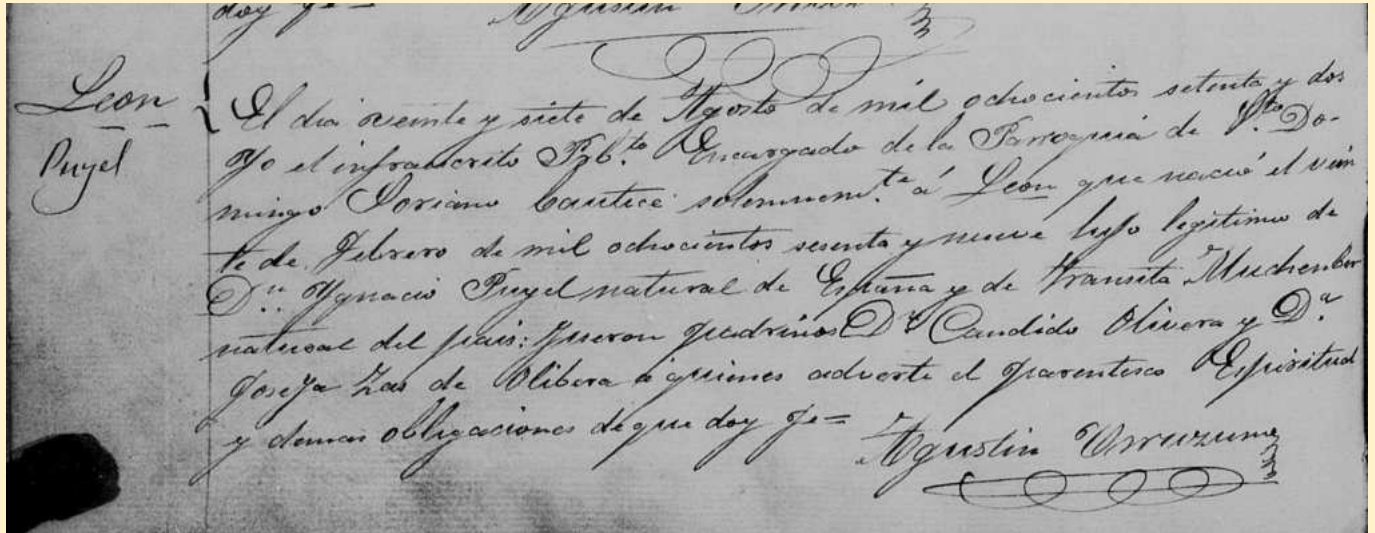 doy fe= Agustin
Leon
Puyel
El dia veinte y siete de Agosto de mil ochocientos setenta y dos
Yo el infrascrito Prb.to Encargado de la Parroquia de S.to Do-
mingo Soriano bauticé solemnem.te á Leon que nació el vein
te de Febrero de mil ochocientos sesenta y nueve hijo legitimo de
D.n Ygnacio Puyel natural de España y de Transita Muchenber
natural del pais: fueron padrinos D.n Candido Olivera y D.a
Josefa Zas de Olibera á quienes advertí el parentesco Espiritual
y demas obligaciones de que doy fe=
Agustin